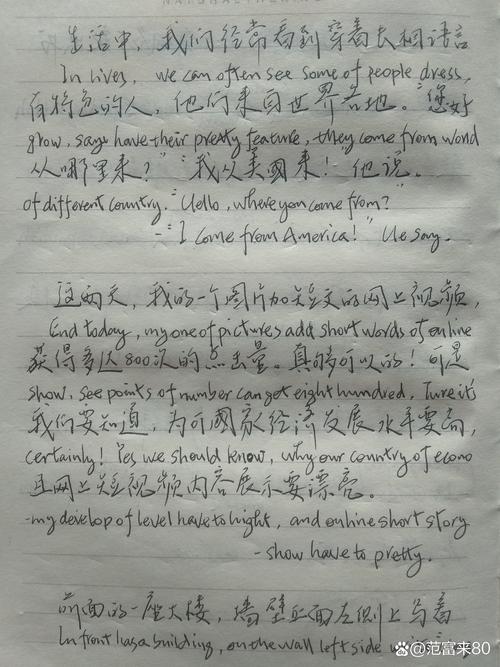 生活中，我们经常看到穿着长相语言
In lives, we can often see some of people dress,
有特色的人，他们来自世界各地。"您好
grow, says have their pretty feature, they come from world
从哪里来？" "我从美國来！他说。
of different country. "Hello, where you come from?"
-"I come from America!" He say.
这两天，我的一个图片加短文的网上视频，
End today, my one of pictures add short words of online
获得多达800次的点击量。真的可以的！可是
show, see points of number can get eight hundred. Ture it's
我们要知道，为何國家经济发展水平要高，
certainly! Yes we should know, why our country of econo
且网上短视频内容展示要漂亮。
-my develop of level have to hight, and online short story
- show have to pretty.
前面的一座大楼，墙壁正面左侧上写着
In front has a building, on the wall left side
@范富来80